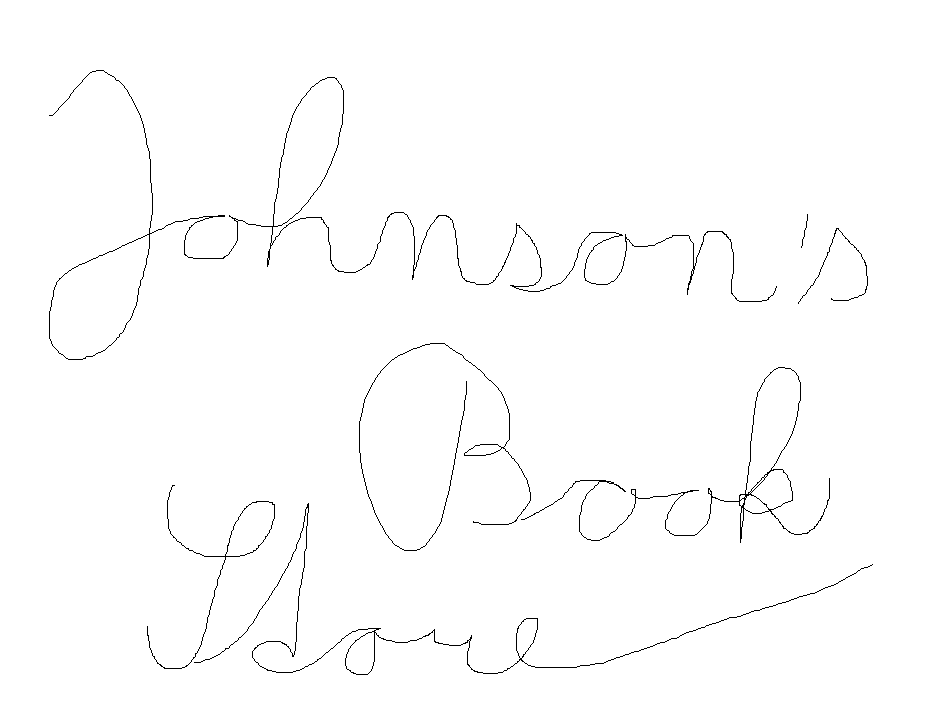 Johnson's
Book
Store